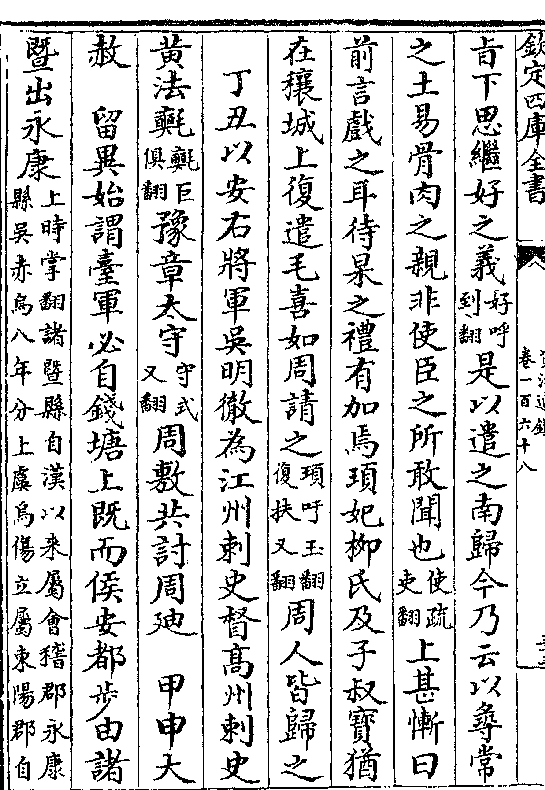 欽定四庫全書
資治通鑑
卷一百六十八
㫖下思繼好之義好呼到翻是以遣之南歸今乃云以尋常
之土易骨肉之親非使臣之所敢聞也使疏吏翻上甚慙曰
前言戲之耳待杲之禮有加焉頊妃柳氏及子叔寶猶
在穰城上復遣毛喜如周請之頊吁玉翻復扶又翻周人皆歸之
丁丑以安右將軍吳明徹為江州刺史督髙州刺史
黃法𣰰𣰰巨俱翻豫章太守守式又翻周敷共討周廸　甲申大
赦　留異始謂臺軍必自錢塘上既而侯安都步由諸
暨出永康上時掌翻諸暨縣自漢以来屬會稽郡永康縣吳赤烏八年分上虞烏傷立屬東陽郡自